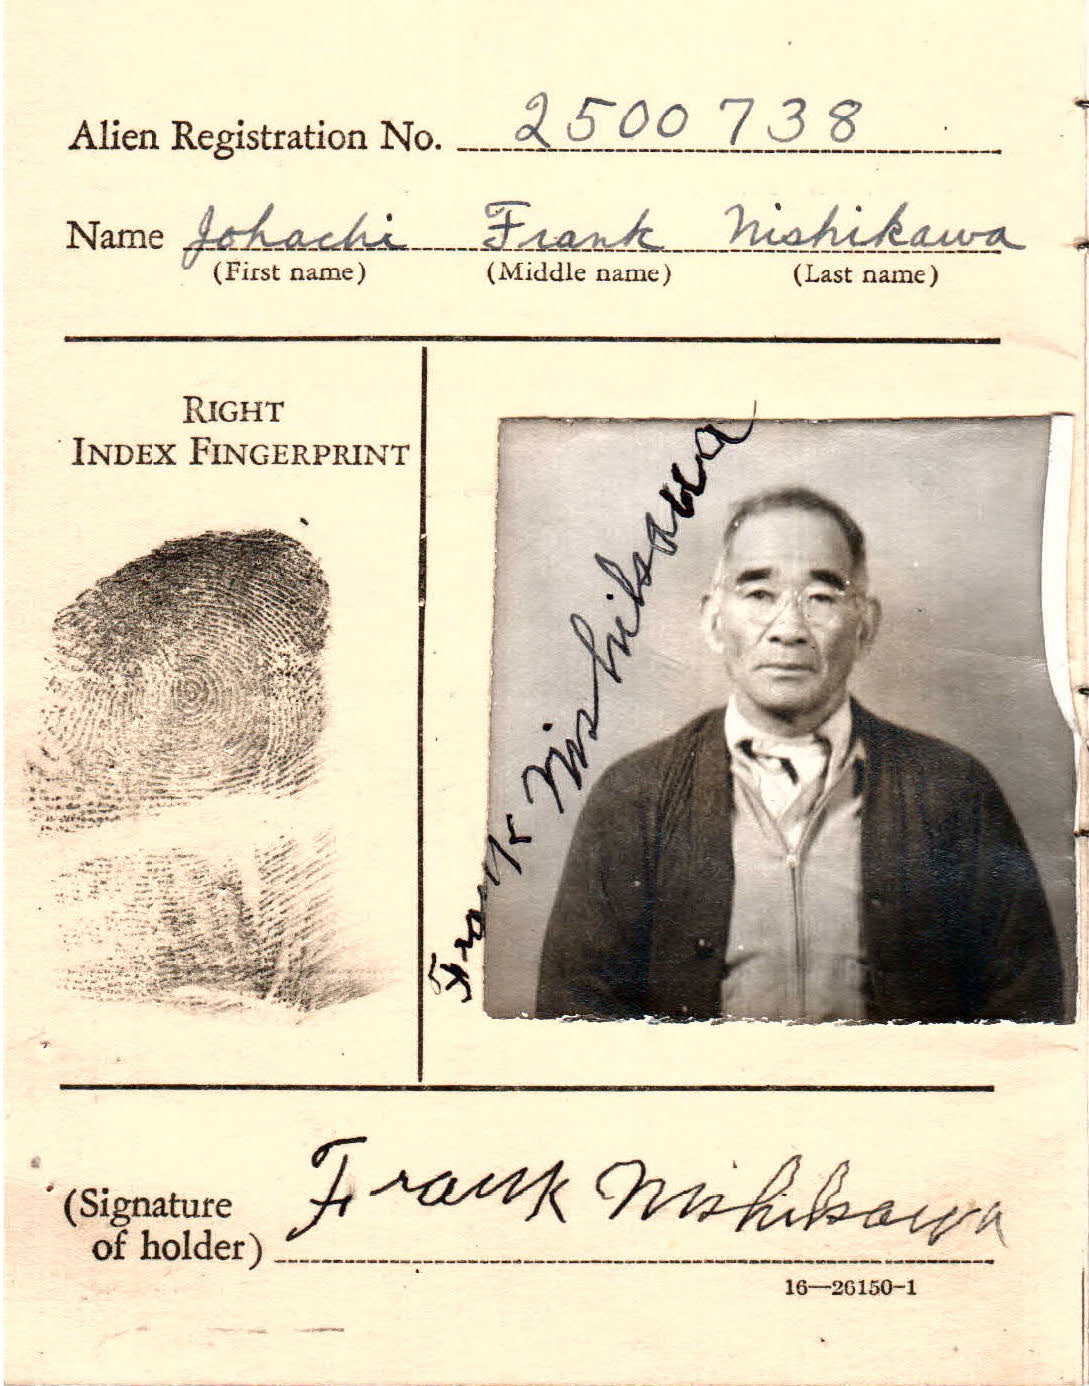 Alien Registration No. 2500738
Name Johachi Frank Nishikawa
(First name) (Middle name) (Last name)
RIGHT
INDEX FINGERPRINT
Frank Nishikawa
(Signature
of holder) Frank Nishikawa
16—26150-1